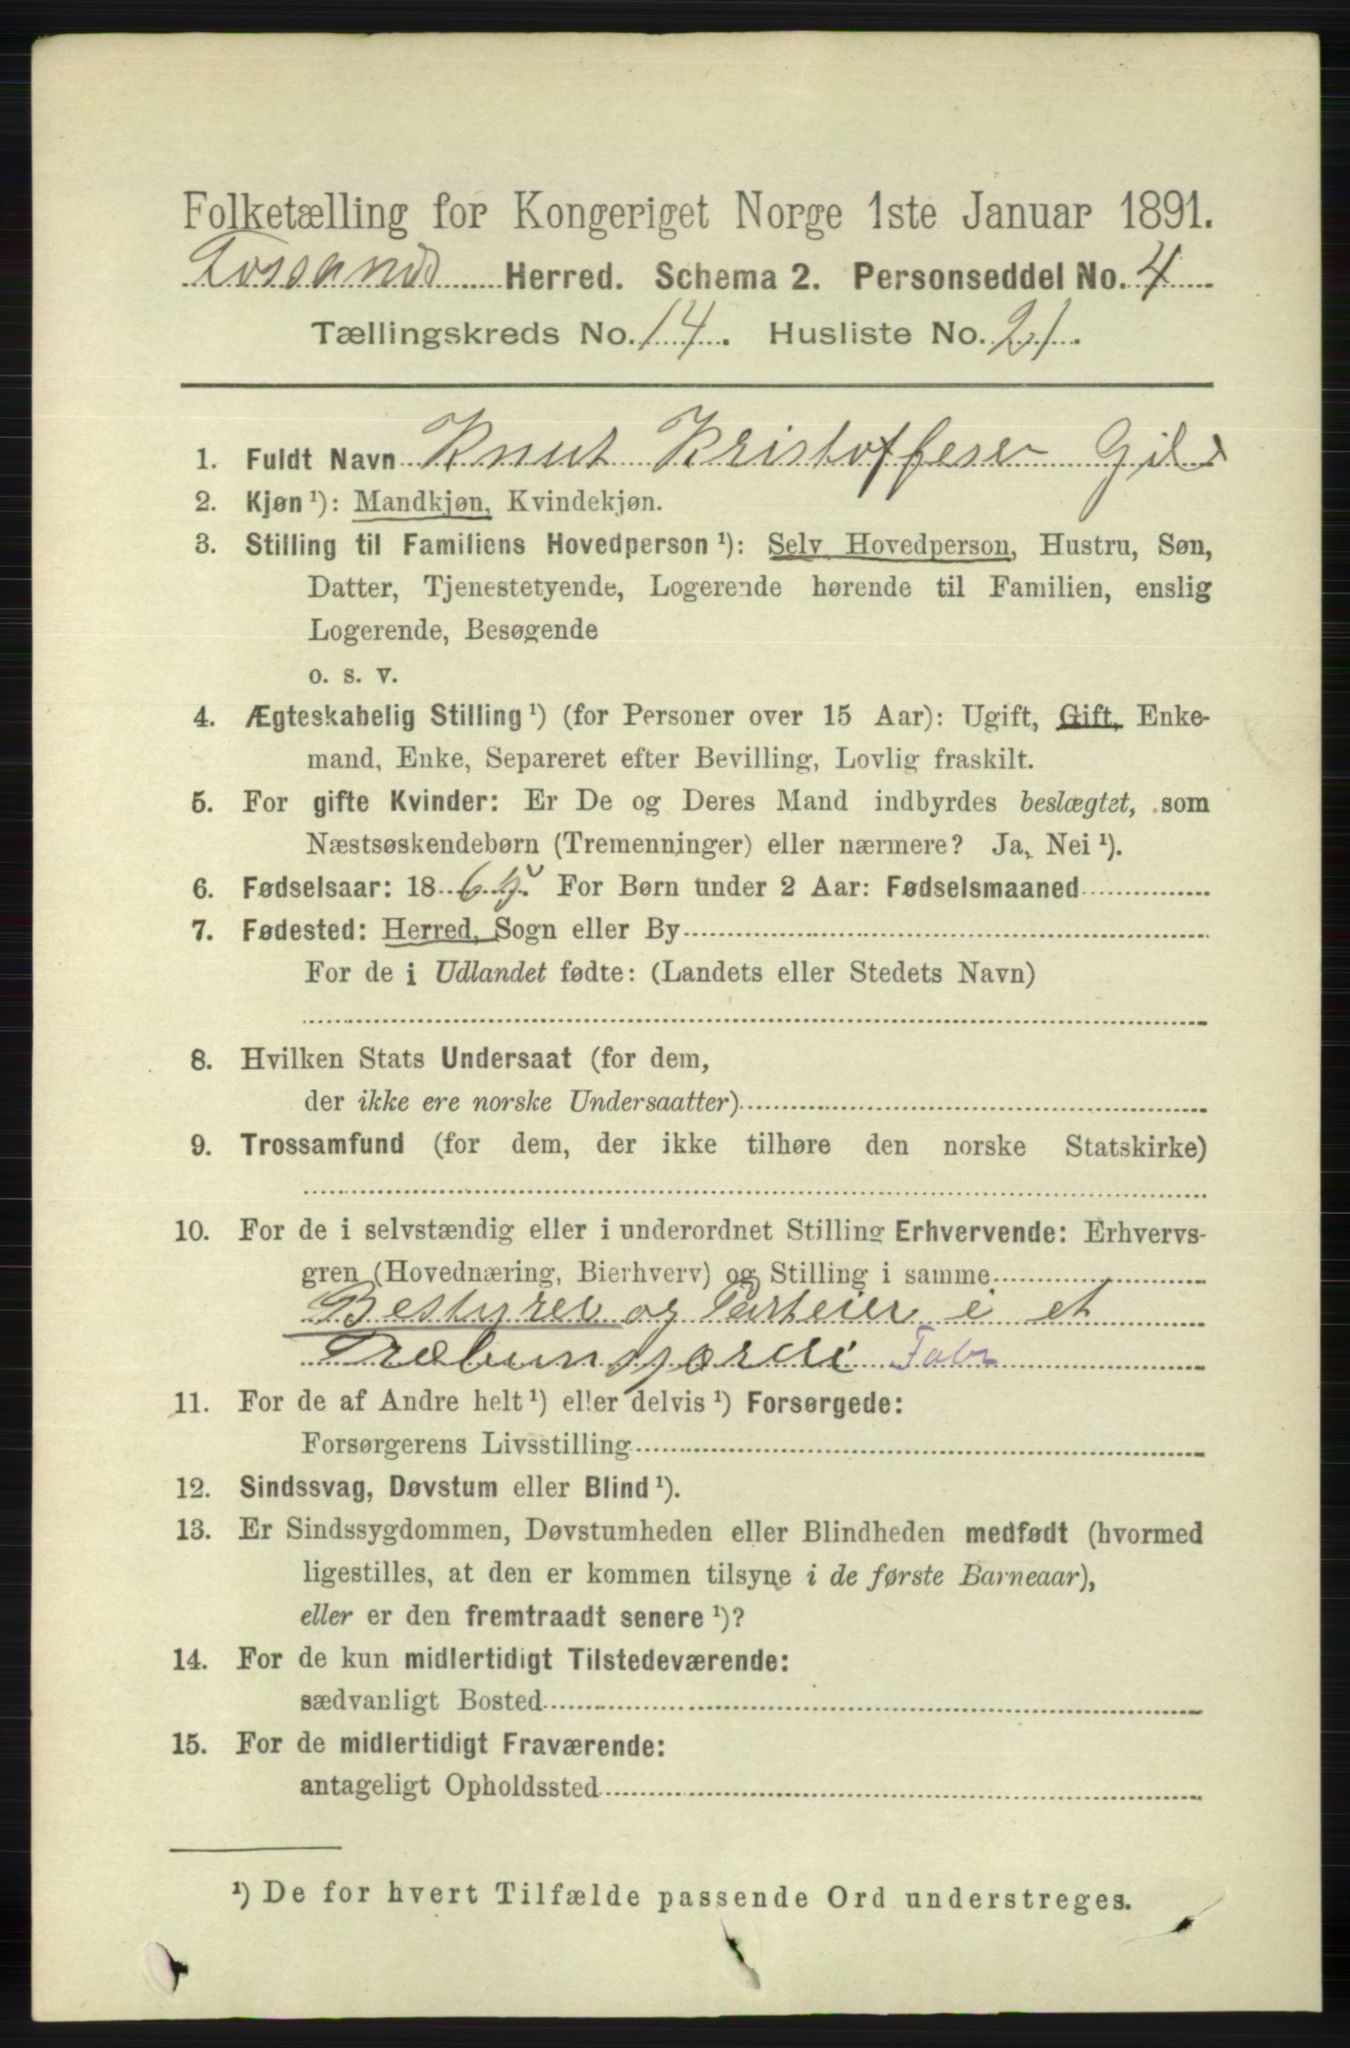 Folketælling for Kongeriget Norge 1ste Januar 1891.
Fossands Herred. Schema 2. Personseddel No. 4
Tællingskreds No. 14. Husliste No. 21.
1. Fuldt Navn Knut Kristoffersen
2. Kjøn ¹): Mandkjøn, Kvindekjøn.
3. Stilling til Familiens Hovedperson ¹): Selv Hovedperson, Hustru, Søn,
Datter, Tjenestetyende, Logerende hørende til Familien, enslig
Logerende, Besøgende
o. s. v.
4. Ægteskabelig Stilling ¹) (for Personer over 15 Aar): Ugift, Gift, Enke-
mand, Enke, Separeret efter Bevilling, Lovlig fraskilt.
5. For gifte Kvinder: Er De og Deres Mand indbyrdes beslægtet, som
Næstsøskendebørn (Tremenninger) eller nærmere? Ja, Nei ¹).
6. Fødselsaar: 18 For Børn under 2 Aar: Fødselsmaaned
7. Fødested: Herred, Sogn eller By
For de i Udlandet fødte: (Landets eller Stedets Navn)
8. Hvilken Stats Undersaat (for dem,
der ikke ere norske Undersaatter)
9. Trossamfund (for dem, der ikke tilhøre den norske Statskirke)
10. For de i selvstændig eller i underordnet Stilling Erhvervende: Erhvervs-
gren (Hovednæring, Bierhverv) og Stilling i samme
Bestyrer og Parteier i et
Fabr
11. For de af Andre helt ¹) eller delvis ¹) Forsørgede:
Forsørgerens Livsstilling
12. Sindssvag, Døvstum eller Blind ¹).
13. Er Sindssygdommen, Døvstumheden eller Blindheden medfødt (hvormed
ligestilles, at den er kommen tilsyne i de første Barneaar),
eller er den fremtraadt senere ¹)?
14. For de kun midlertidigt Tilstedeværende:
sædvanligt Bosted
15. For de midlertidigt Fraværende:
antageligt Opholdssted
¹) De for hvert Tilfælde passende Ord understreges.